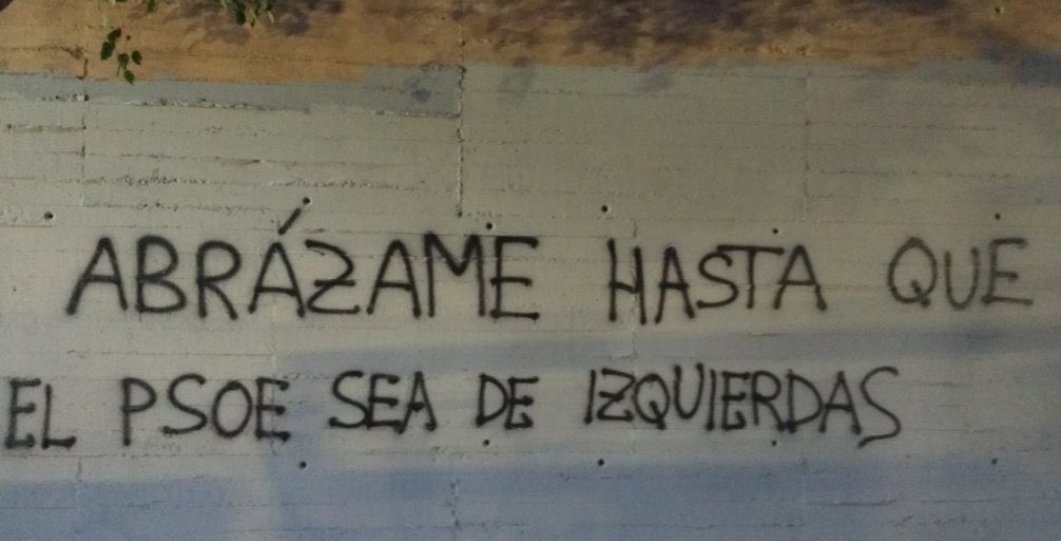 ABRÁZAME HASTA QUE
EL PSOE SEA DE IZQUIERDAS